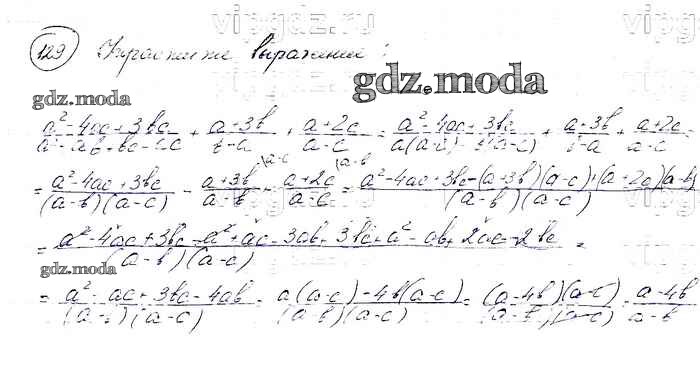 vipgdz.ru vipgdz.ru
129 Упростите выражение:
gdz.moda
gdz.moda
(a²-4ac+3bc)/(a²-ab+bc-ac) + (a+3b)/(b-a) + (a+2c)/(a-c) = (a²-4ac+3bc)/(a(a-c)-b(a-c)) + (a+3b)/(b-a) + (a+2c)/(a-c)
= (a²-4ac+3bc)/((a-b)(a-c)) - (a+3b)/(a-b) \a-c + (a+2c)/(a-c) \a-b = (a²-4ac+3bc-(a+3b)(a-c)+(a+2c)(a-b))/((a-b)(a-c))
= (a²-4ac+3bc-a²+ac-3ab+3bc+a²-ab+2ac-2bc)/((a-b)(a-c)) =
gdz.moda
= (a²-ac+3bc-4ab)/((a-b)(a-c)) = (a(a-c)-4b(a-c))/((a-b)(a-c)) = ((a-4b)(a-c))/((a-b)(a-c)) = (a-4b)/(a-b)